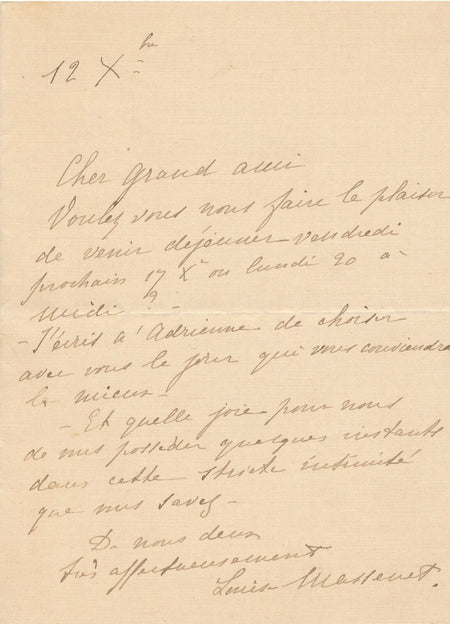 12 Xbre
Cher grand ami
Voulez vous nous faire le plaisir
de venir déjeuner vendredi
prochain 17 Xe ou lundi 20 à
midi ?
- J'écris à Adrienne de choisir
avec vous le jour qui vous conviendra
le mieux -
- Et quelle joie pour nous
de vous posséder quelques instants
dans cette stricte intimité
que vous savez -
De nous deux
très affectueusement
Louise Massenet.